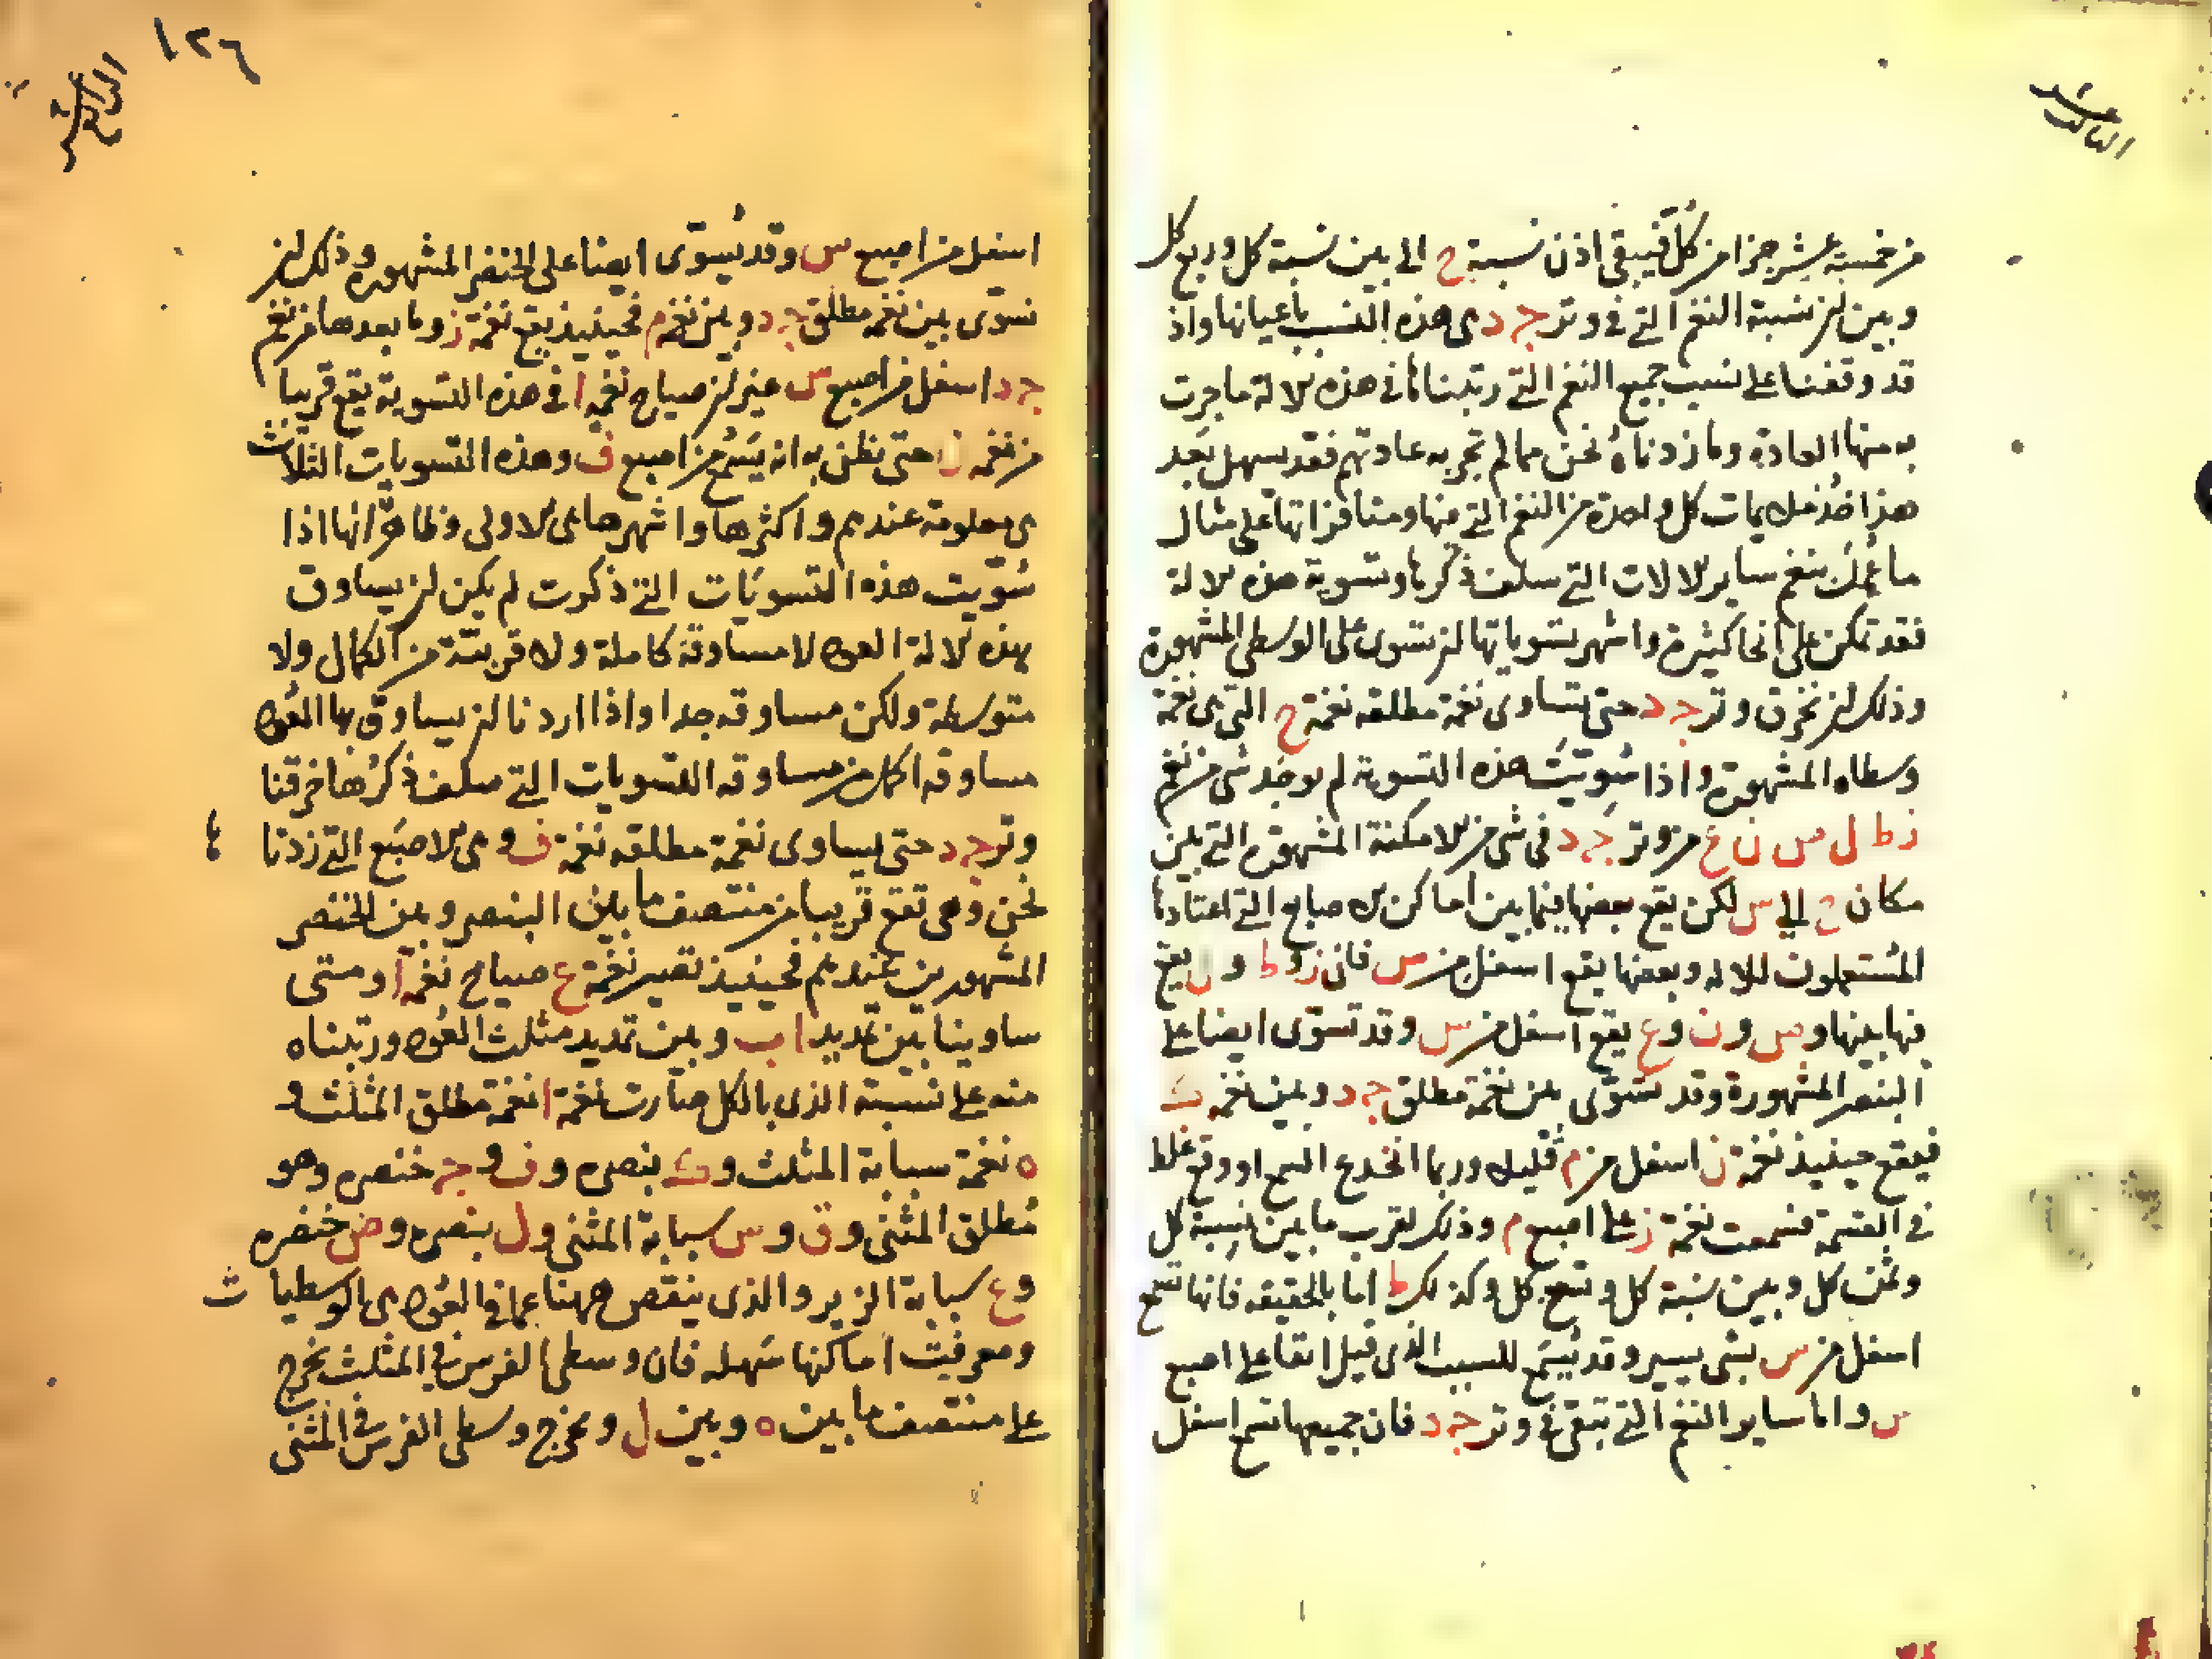 الثالث عشر
من خمسة عشر جزا من كل فيبقى اذن نسبة ح الى بين نسبة كل وربع كل
وبين ان نسبة النغم التي في وتر ج د هى هذه النسب باعيانها واذ
قد وقفنا على نسب جميع النغم التي رتبناها في هذه الالة ما جرت
به منها العادة وما زدناه نحن مما لم تجر به عادتهم فقد سهل بعد
هذا اخذ ملايمات كل واحدة من النغم التي فيها ومتنافراتها على مثال
ما عمل بنغم ساير الالات التي سلف ذكرها وتسوية هذه الالة
فقد تمكن على انحا كثيرة واشهر تسوياتها ان تسوى على الوسطى المشهورة
وذلك ان نخرق وتر ج د حتى تساوى نغمة مطلقه نغمة ح التي هى نغمة
وسطاه المشهورة واذا سويت هذه التسوية لم يوجد شى من نغم
ز ط ل س ن ع من وتر ج د في شى من الامكنة المشهورة التي بين
مكان ح الى س لكن يقع بعضها فيما بين اماكن الاصابع التي اعتادها
المستعملون للالة وبعضها يقع اسفل من س فان ز و ط و ل يقع
فيما بينها و س و ن و ع يقع اسفل من س وقد تسوى ايضا على
البنصر المشهورة وقد تسوى بين نغمة مطلق ج د وبين نغمة ك
فيقع حينيذ نغمة ن اسفل من م قليلا وربما انخدع السمع او وقع غلط
في القسمة فسمعت نغمة ز على اصبع م وذلك لقرب ما بين نسبة كل
وثمن كل وبين نسبة كل وتسع كل وكذلك ط اما بالحقيقة فانها تسمع
اسفل من س بشى يسير وقد تسمع للسبب الذى قيل انفا على اصبع
س واما ساير النغم التي تبقى في وتر ج د فان جميعها تسمع اسفل
١٢٦
الرابع عشر
اسفل من اصبع س وقد تسوى ايضا على الخنصر المشهورة وذلك ان
نسوى بين نغمة مطلق ج د وبين نغمة م فحينيذ يقع نغمة ز وما بعدها من نغم
ج د اسفل من اصبع س غير ان صياح نغمة ا في هذه التسوية يقع قريبا
من نغمة ن حتى نظن به انه يسمع من اصبع ف وهذه التسويات الثلاث
هى معلومة عندهم واكثرها واشهرها هى الاولى وظاهر انها اذا
سويت هذه التسويات التي ذكرت لم يكن ان يساوق
بهذه الالة العود لا مساوقة كاملة ولا قريبة من الكمال ولا
متوسطة ولكن مساوقه جدا واذا اردنا ان يساوق بها العود
مساوقه اكمل من مساوقه التسويات التي سلف ذكرها خرقنا
وتر ج د حتى يساوى نغمة مطلقه نغمة ف وهى الاصبع التي زدنا ها
نحن وهى تقع قريبا من منتصف ما بين البنصر وبين الخنصر
المشهورين عندهم فحينيذ تصير نغمة ع صياح نغمة ا ومتى
ساوينا بين تمديد ا ب وبين تمديد مثلث العود ورتبناه
منه على نسبة الذى بالكل صارت نغمة ا نغمة مطلق المثلث و
ه نغمة سبابة المثلث و ك بنصره و ف و ج خنصره وهو
مطلق المثنى و ق و س سبابة المثنى و ل بنصره و ض خنصره
و ع سبابة الزير والذى ينقص ههنا عما في العود هى الوسطيا ت
ومعرفة اماكنها سهله فان وسطى الفرس في المثلث يخرج
على منتصف ما بين ه وبين ل ويخرج وسطى الفرس في المثنى